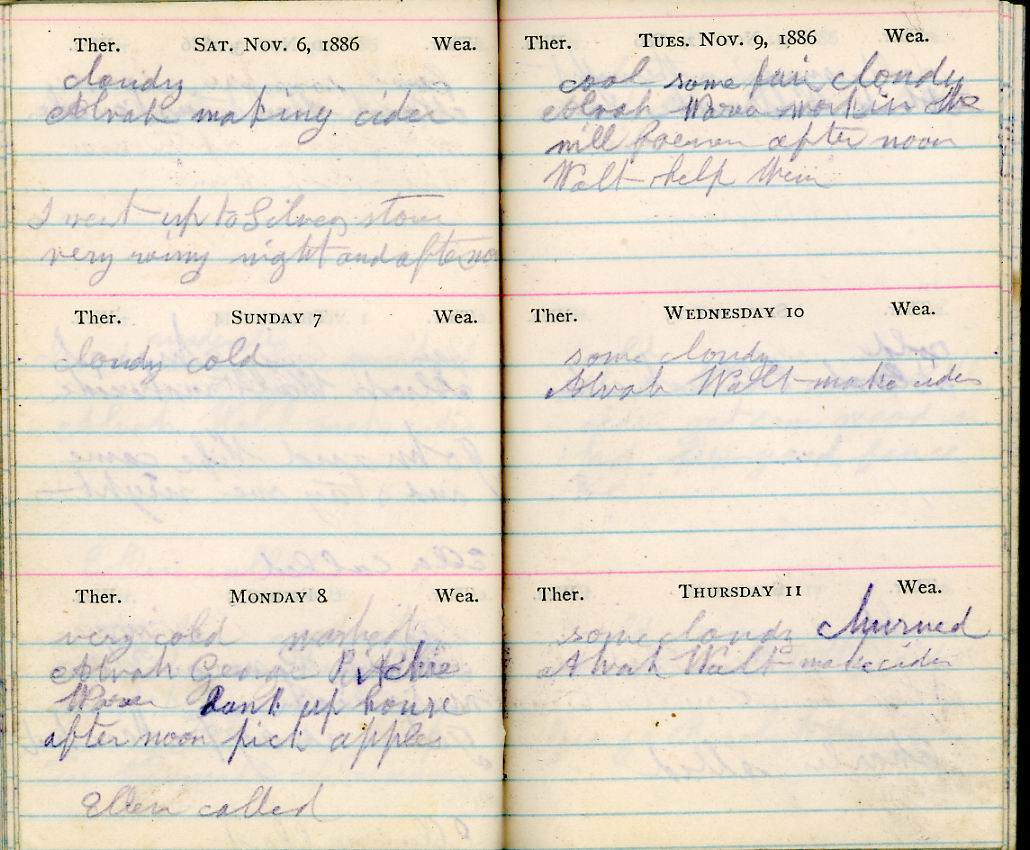 Ther. SAT. NOV. 6, 1886 Wea.
cloudy
Alvah making cider
I went up to Silver store
very rainy night and afterno
Ther. SUNDAY 7 Wea.
cloudy cold
Ther. MONDAY 8 Wea.
very cold washed
Alvah George Ritchie
bank up house
after noon pick apples
Ellen called
Ther. TUES. NOV. 9, 1886 Wea.
cool some fair cloudy
Alvah work in the
mill after noon
Walt help them
Ther. WEDNESDAY 10 Wea.
some cloudy
Alvah Walt make cider
Ther. THURSDAY 11 Wea.
some cloudy churned
Alvah Walt make cider